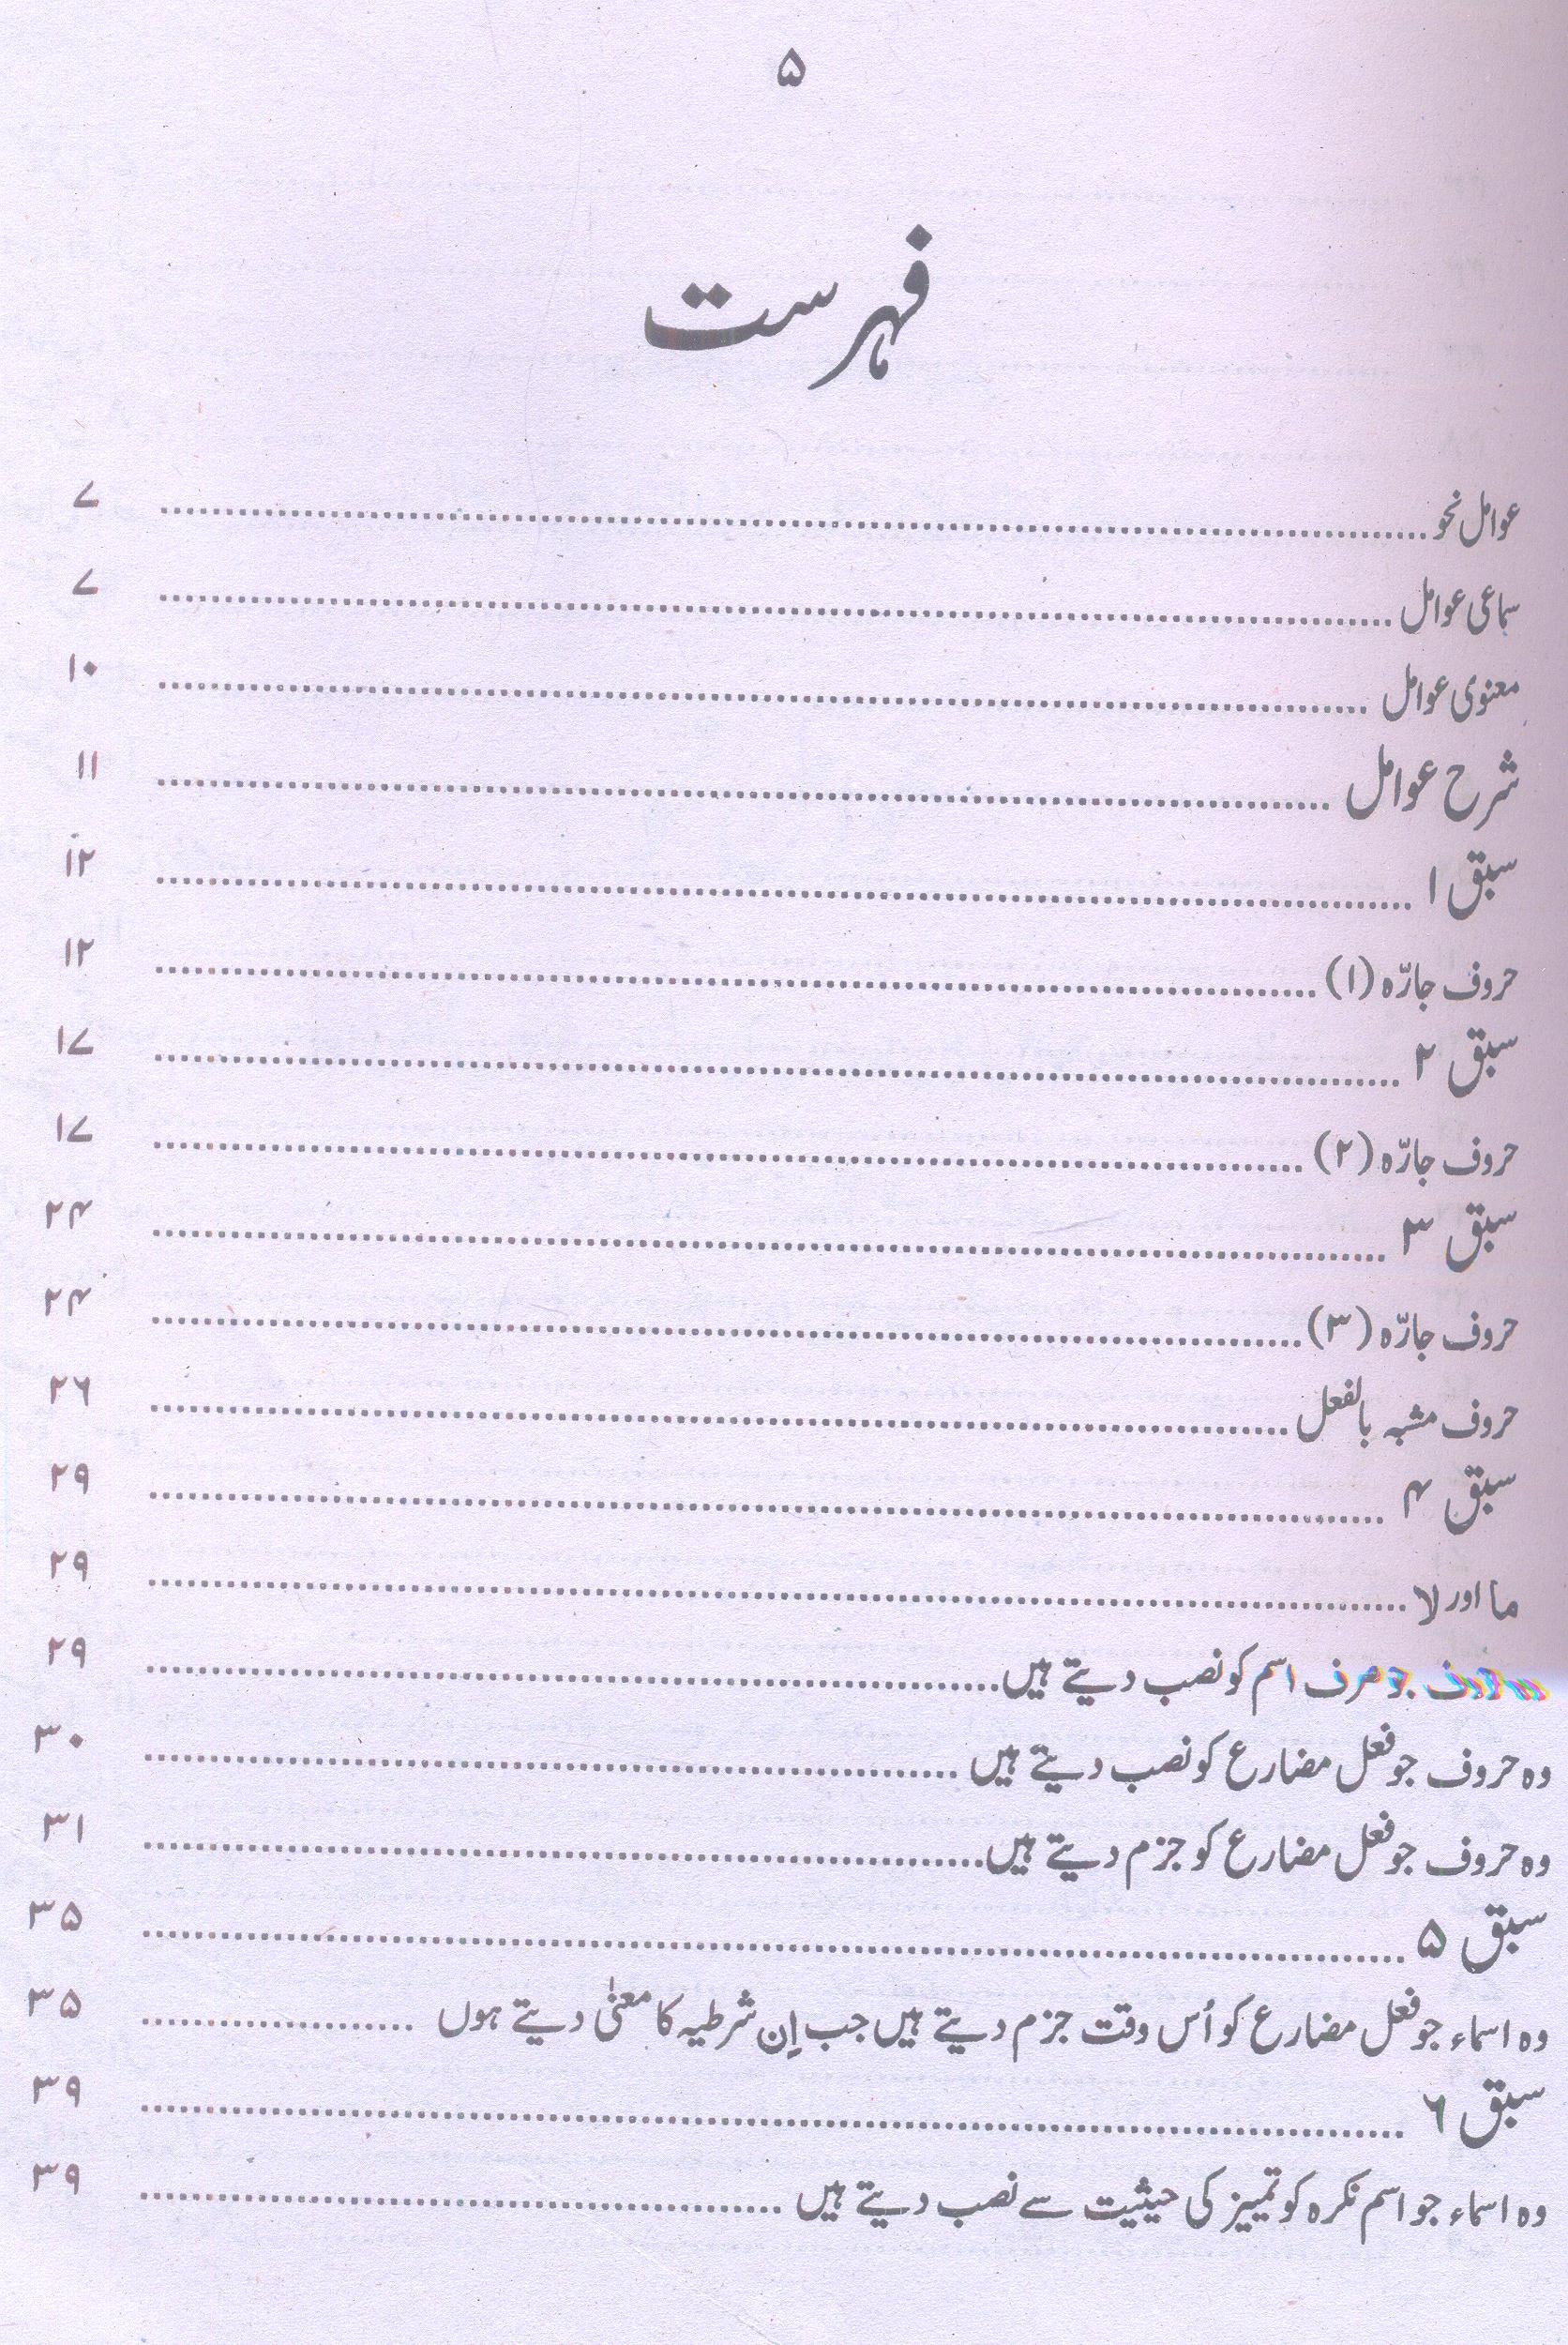 ۵
فہرست
عوامل نحو ........ ۷
سماعی عوامل ........ ۷
معنوی عوامل ........ ۱۰
شرح عوامل ........ ۱۱
سبق ۱ ........ ۱۲
حروف جارّہ (۱) ........ ۱۲
سبق ۲ ........ ۱۷
حروف جارّہ (۲) ........ ۱۷
سبق ۳ ........ ۲۴
حروف جارّہ (۳) ........ ۲۴
حروف مشبہ بالفعل ........ ۲۶
سبق ۴ ........ ۲۹
ما اور لا ........ ۲۹
حروف جو صرف اسم کو نصب دیتے ہیں ........ ۲۹
وہ حروف جو فعل مضارع کو نصب دیتے ہیں ........ ۳۰
وہ حروف جو فعل مضارع کو جزم دیتے ہیں ........ ۳۱
سبق ۵ ........ ۳۵
وہ اسماء جو فعل مضارع کو اُس وقت جزم دیتے ہیں جب اِن شرطیہ کا معنیٰ دیتے ہوں ........ ۳۵
سبق ۶ ........ ۳۹
وہ اسماء جو اسم نکرہ کو تمییز کی حیثیت سے نصب دیتے ہیں ........ ۳۹